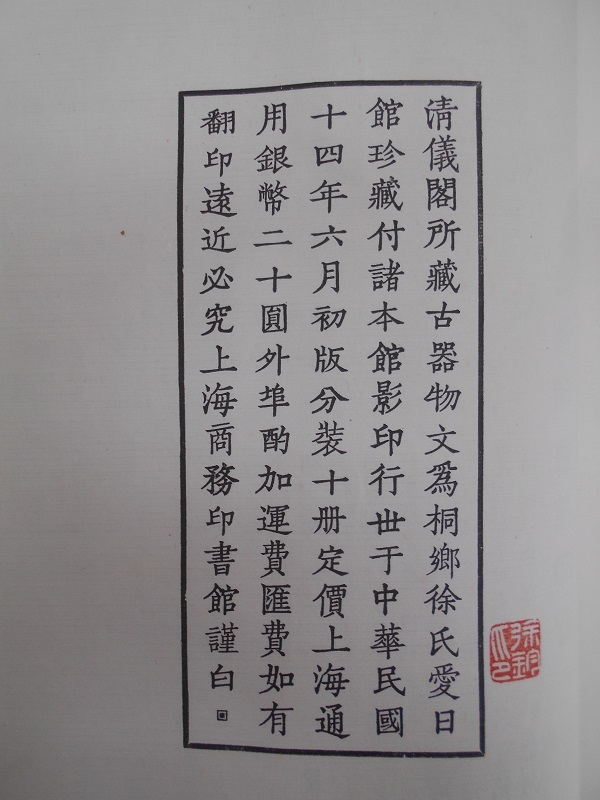 清儀閣所藏古器物文爲桐鄉徐氏愛日
館珍藏付諸本館影印行世于中華民國
十四年六月初版分裝十册定價上海通
用銀幣二十圓外埠酌加運費匯費如有
翻印遠近必究上海商務印書館謹白